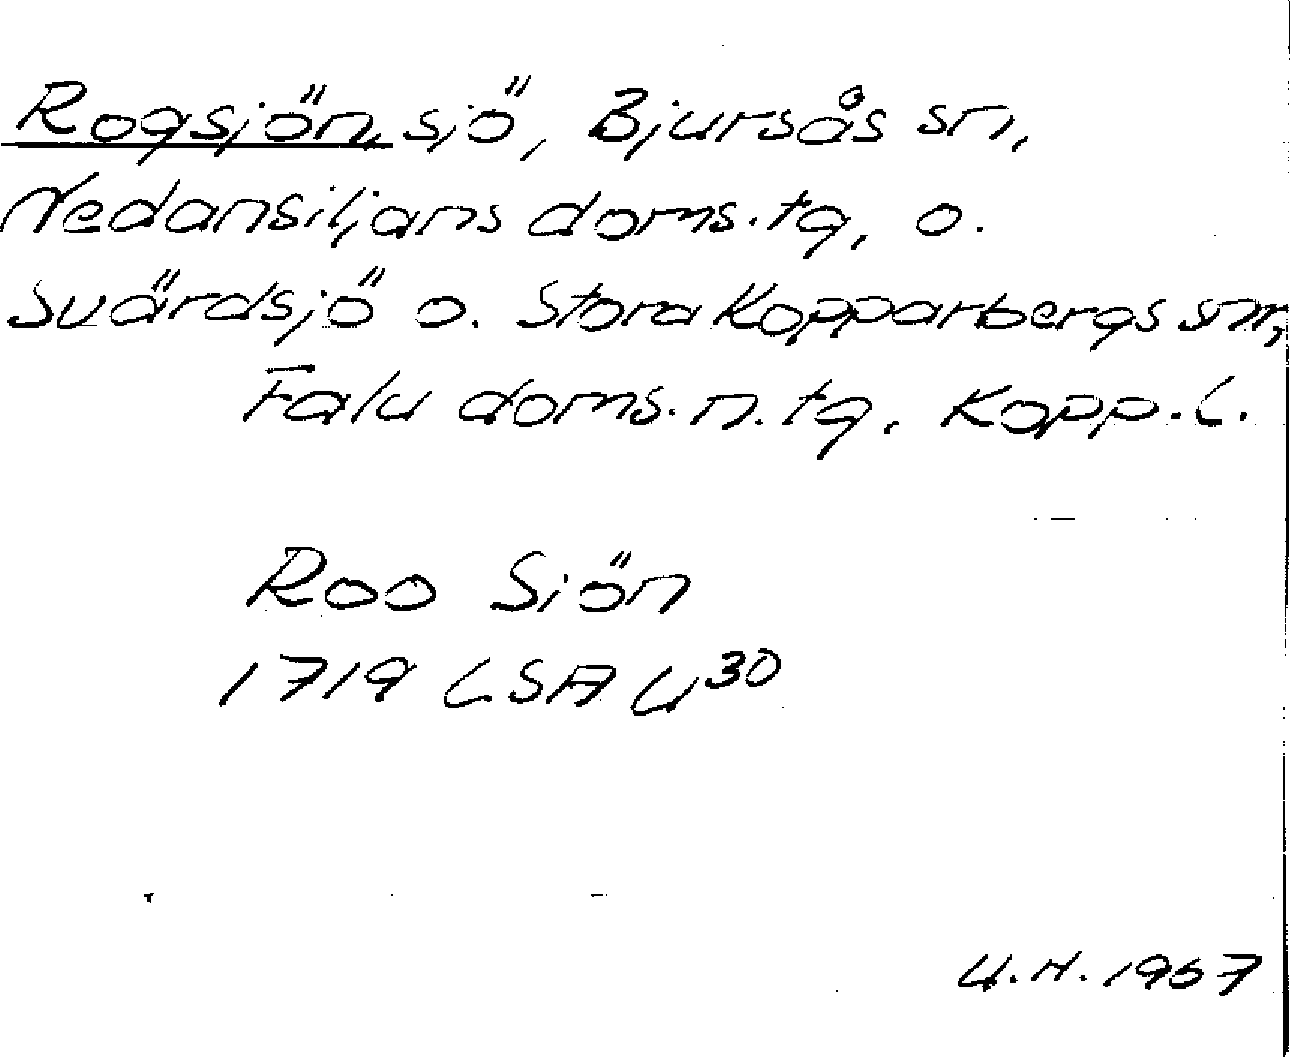 Rogsjön, sjö, Bjursås sn,
Nedansiljans doms.tg, o.
Svärdsjö o. Stora Kopparbergs snr,
Falu doms.n.tg. Kopp.l.
Roo Siön
1719 LSA U30
U.H. 1967